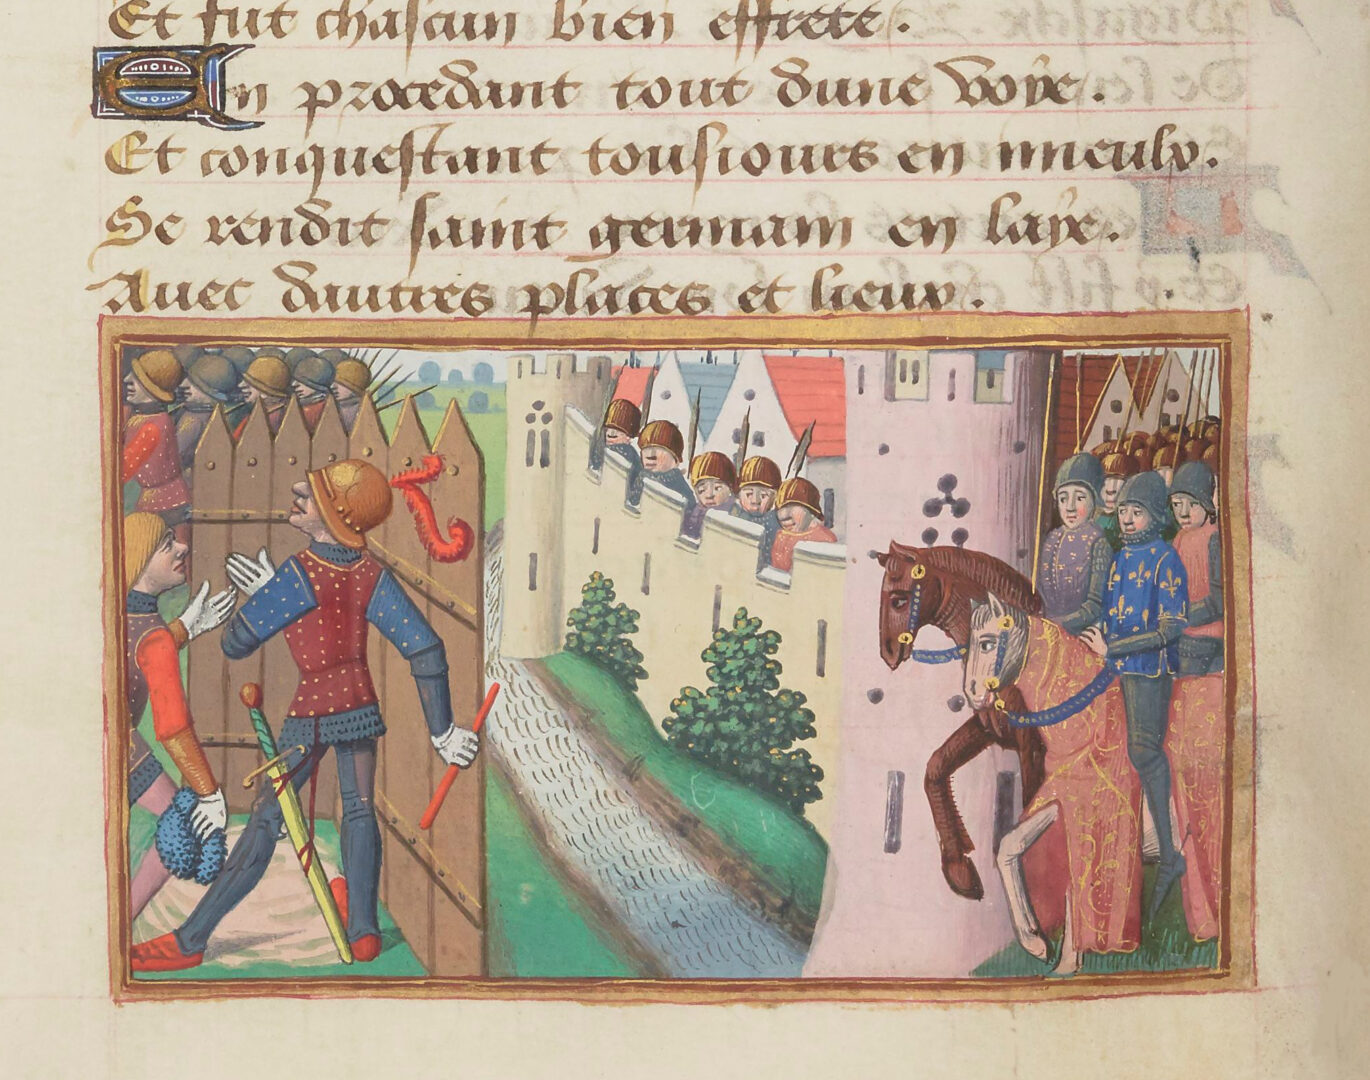 Et fut chascun bien effrete.
En procedant tout dune voye.
Et conquestant tousiours en mieulx.
Se rendit saint germain en laye.
Auec dautres places et lieux.